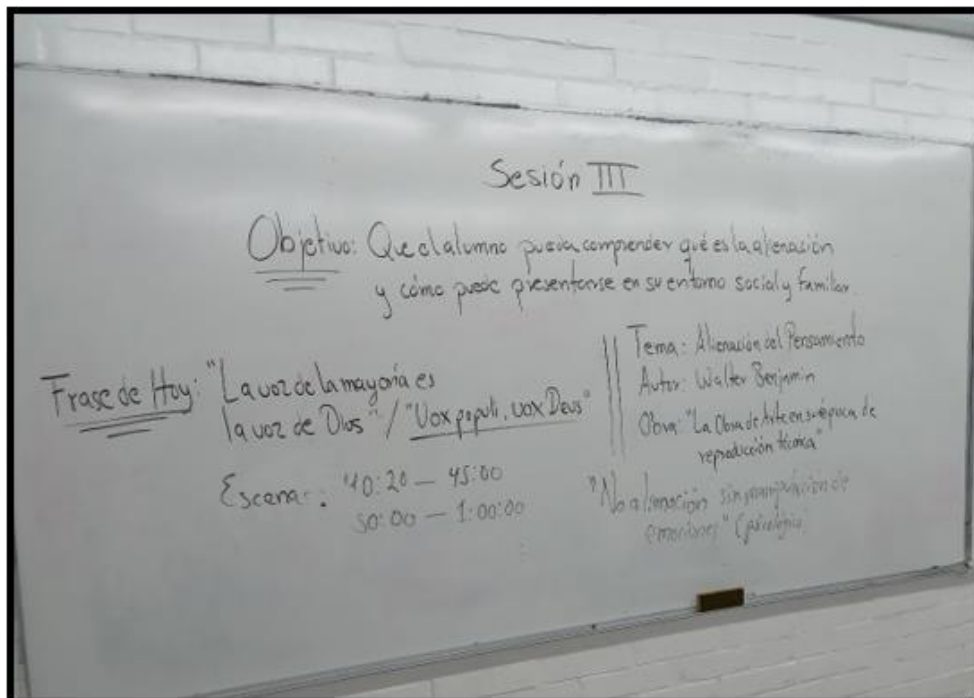 Sesión III
Objetivo: Que el alumno pueda comprender qué es la alienación
y cómo puede presentarse en su entorno social y familiar.
Frase de Hoy: "La voz de la mayoría es
la voz de Dios" / "Vox populi, vox Deus"
Escena: 40:20 — 45:00
50:00 — 1:00:00
Tema: Alienación del Pensamiento
Autor: Walter Benjamin
Obra: "La Obra de Arte en su época de
reproducción técnica"
"No alienación sin manipulación de
emociones"